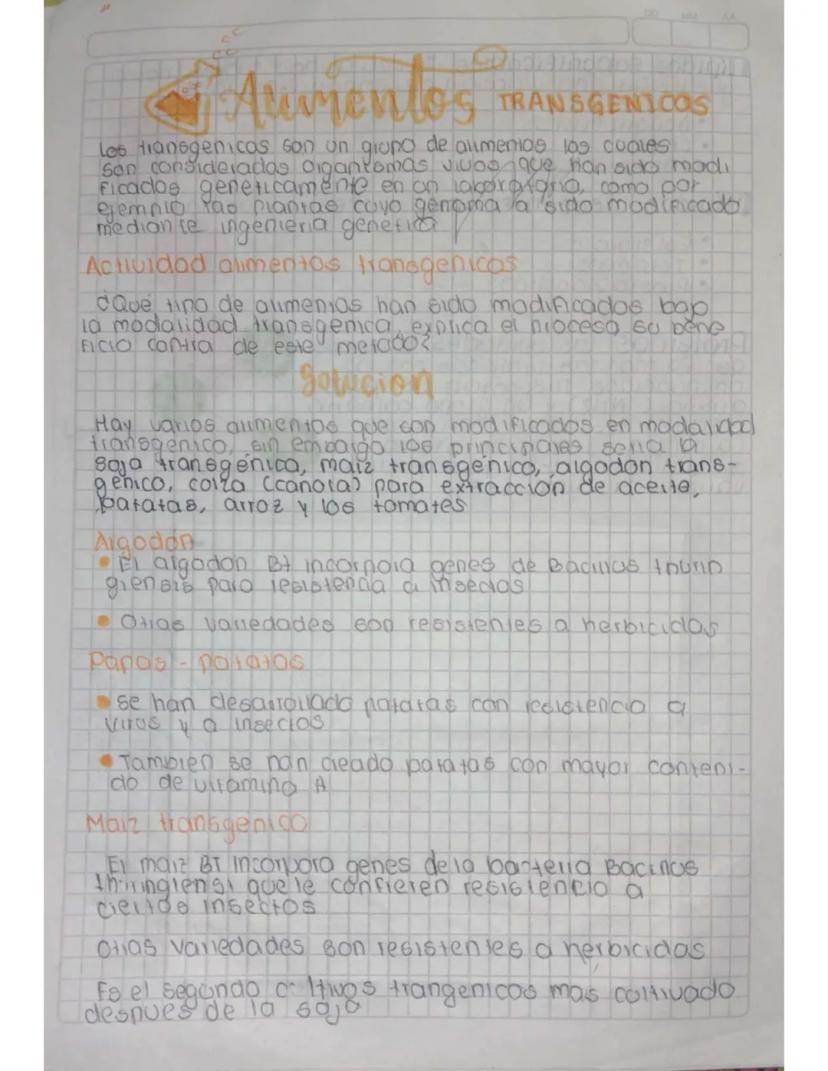 Alimentos TRANSGENICOS
Los transgenicos son un grupo de alimentos los cuales
son considerados organismos vivos que han sido modi
ficados geneticamente en un laboratorio, como por
ejemplo las plantas cuyo genoma a sido modificado
mediante ingenieria genetica
Actividad alimentos transgenicos
¿Qué tipo de alimentos han sido modificados bajo
la modalidad transgenica, explica el proceso su bene
ficio contra de este metodo?
Solucion
Hay varios alimentos que son modificados en modalidad
transgenico, sin embargo los principales seria la
soja transgénica, maíz transgénico, algodon trans-
genico, colza (canola) para extracción de aceite,
patatas, arroz y los tomates
Algodón
• El algodon Bt incorpora genes de Bacillus thurin
giensis para resistencia a insectos
• Otras variedades son resistentes a herbicidas
Papas - patatas
• se han desarrollado patatas con resistencia a
virus y a insectos
• Tambien se han creado patatas con mayor conteni-
do de vitamina A
Maiz transgenico
El maiz BT incorpora genes de la bacteria Bacillus
thiringiensi que le confieren resistencia a
ciertos insectos
Otras variedades son resistentes a herbicidas
Es el segundo cultivos trangenicos mas coltivado
despues de la soja